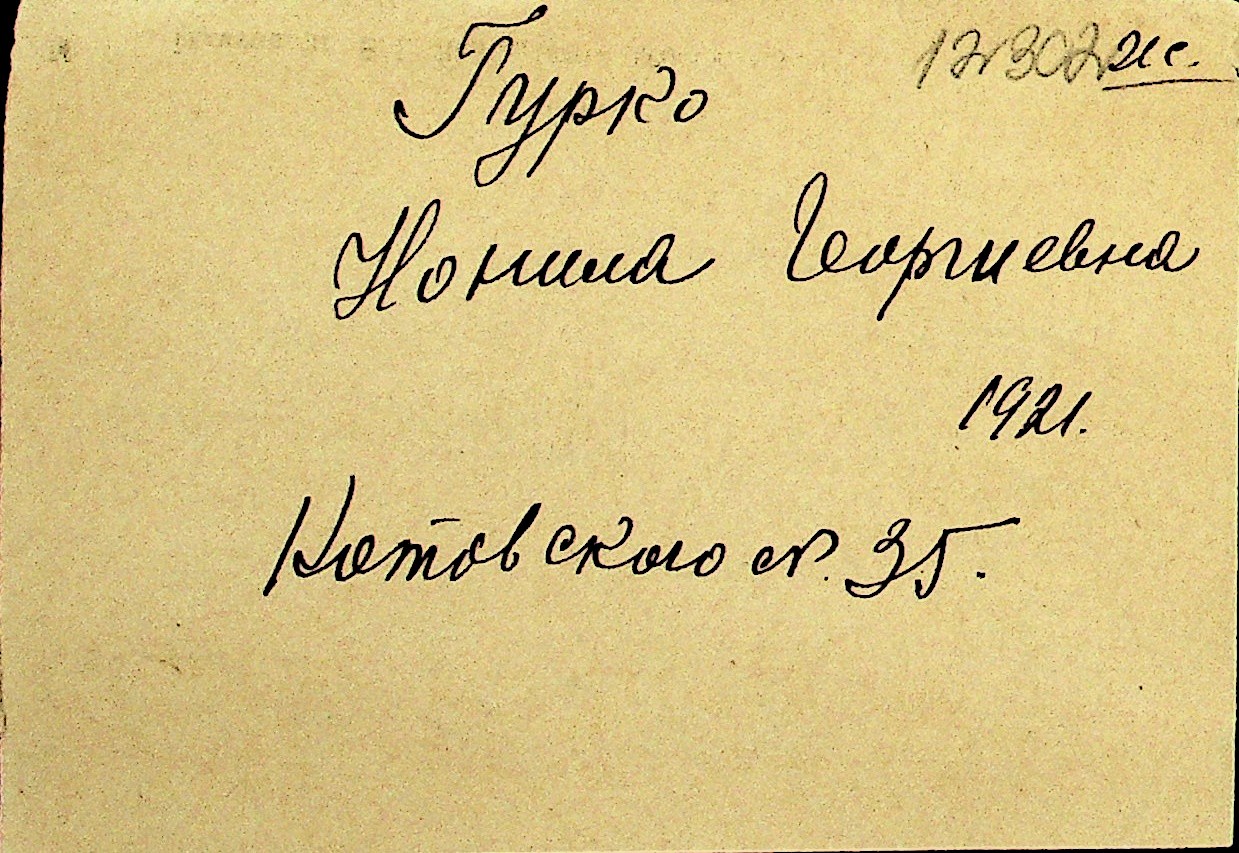 12302 ж.
Гурко
Нонила Георгиевна
1921.
Котовского №. 35.